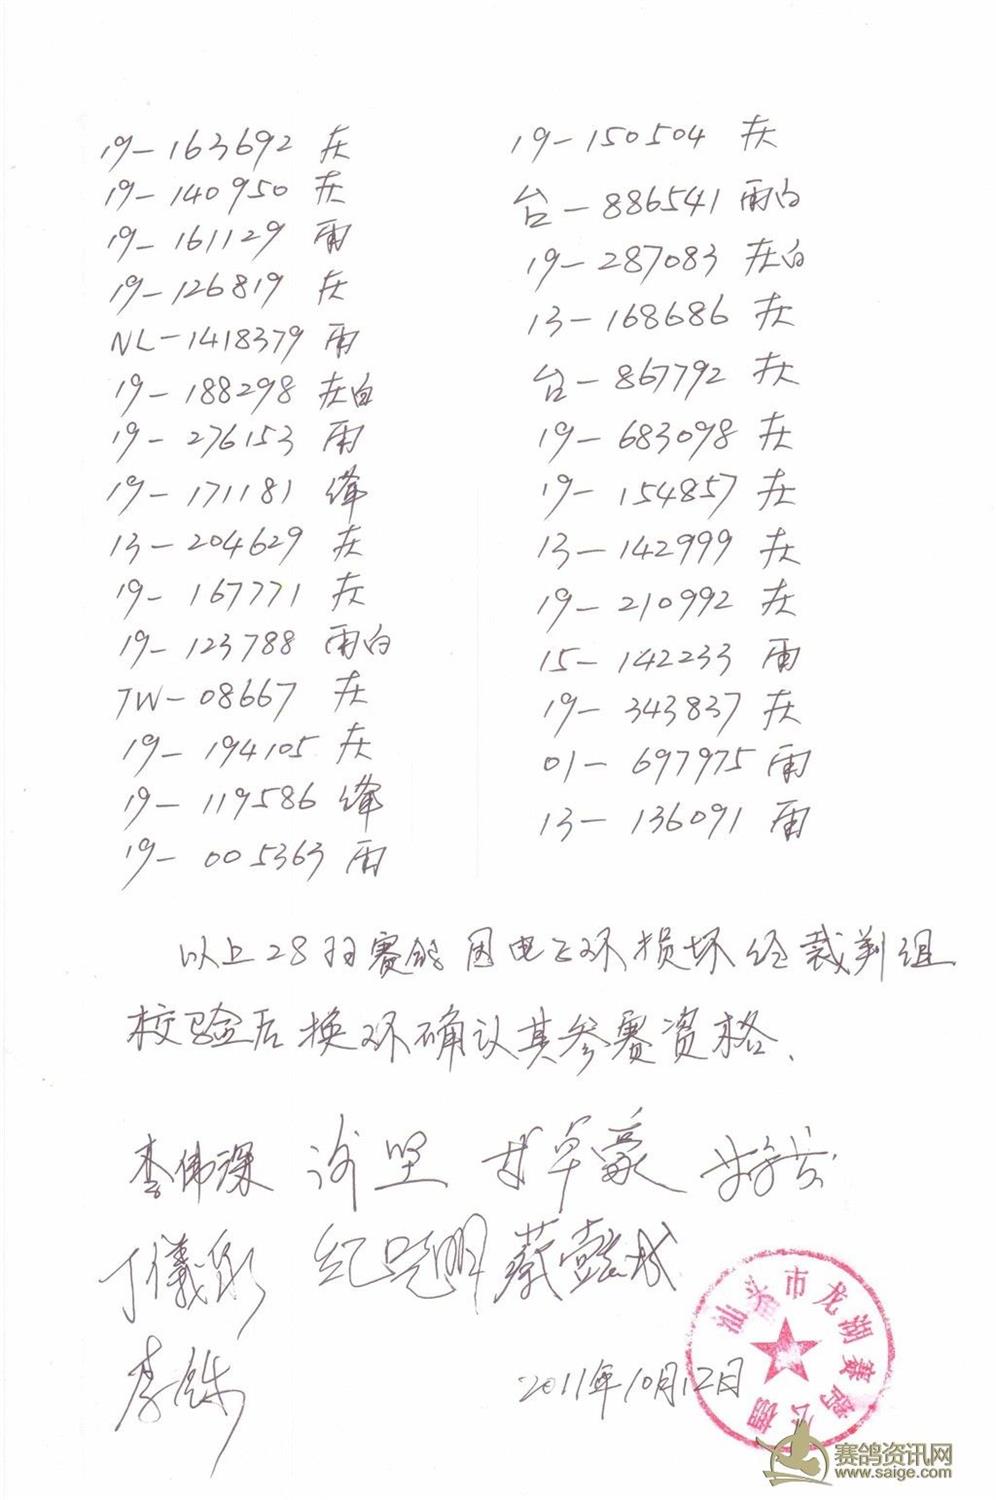 19-163692 灰
19-140950 灰
19-161129 雨
19-126819 灰
NL-1418379 雨
19-188298 灰白
19-276153 雨
19-171181 绛
13-204629 灰
19-167771 灰
19-123788 雨白
TW-08667 灰
19-194105 灰
19-119586 绛
19-005363 雨
19-150504 灰
台-886541 雨白
19-287083 灰白
13-168686 灰
台-867792 灰
19-683098 灰
19-154857 灰
13-142999 灰
19-210992 灰
15-142233 雨
19-343837 灰
01-697975 雨
13-136091 雨
以上28羽赛鸽因电子环损坏经裁判组
校验后换环确认其参赛资格.
李伟深 谢坚
丁儀彬 蔡懿城
2011年10月12日
汕头市龙湖赛鸽公棚
赛鸽资讯网
www.saige.com